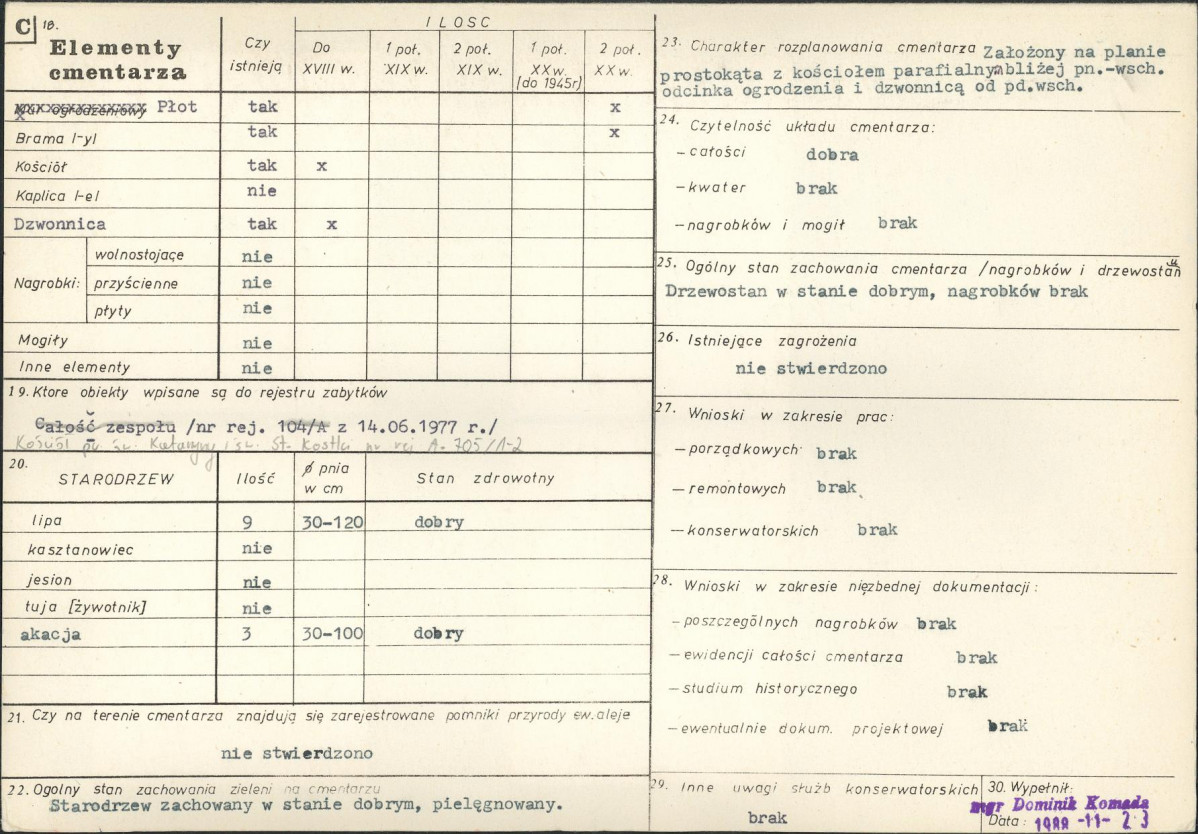 C 18.
Elementy cmentarza
Czy istnieją
ILOŚC
Do XVIII w.
1 poł. XIX w.
2 poł. XIX w.
1 poł. XX w. [do 1945r]
2 poł. XX w.
Mur ogrodzeniowy Płot tak x
Brama /-y/ tak x
Kościół tak x
Kaplica /-e/ nie
Dzwonnica tak x
Nagrobki:
wolnostojące nie
przyścienne nie
płyty nie
Mogiły nie
Inne elementy nie
19. Ktore obiekty wpisane są do rejestru zabytków
Całość zespołu /nr rej. 104/A z 14.06.1977 r./
Kościół pw. św. Katarzyny i św. St. Kostki nr rej A-705/1-2
20.
STARODRZEW Ilość ø pnia w cm Stan zdrowotny
lipa 9 30-120 dobry
kasztanowiec nie
jesion nie
tuja [żywotnik] nie
akacja 3 30-100 dobry
21. Czy na terenie cmentarza znajdują się zarejestrowane pomniki przyrody ew. aleje
nie stwierdzono
22. Ogolny stan zachowania zieleni na cmentarzu
Starodrzew zachowany w stanie dobrym, pielęgnowany.
23. Charakter rozplanowania cmentarza Założony na planie
prostokąta z kościołem parafialnym bliżej pn.-wsch.
odcinka ogrodzenia i dzwonnicą od pd.wsch.
24. Czytelność układu cmentarza:
- całości dobra
- kwater brak
- nagrobków i mogił brak
25. Ogólny stan zachowania cmentarza /nagrobków i drzewostanu
Drzewostan w stanie dobrym, nagrobków brak
26. Istniejące zagrożenia
nie stwierdzono
27. Wnioski w zakresie prac:
- porządkowych brak
- remontowych brak
- konserwatorskich brak
28. Wnioski w zakresie niezbednej dokumentacji:
- poszczególnych nagrobków brak
- ewidencji całości cmentarza brak
- studium historycznego brak
- ewentualnie dokum. projektowej brak
29. Inne uwagi służb konserwatorskich
brak
30. Wypełnił:
mgr Dominik Komada
Data: 1988 -11- 23